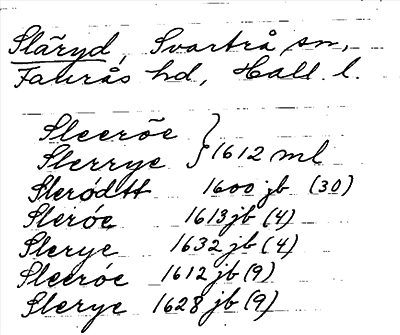 Släryd, Svartrå sn,
Faurås hd, Hall. l.
Sleeröe
Slerrye } 1612 ml
Slerødtt 1600 jb (30)
Sleröe 1613 jb (4)
Slerye 1632 jb (4)
Sleeröe 1612 jb (9)
Slerye 1628 jb (9)